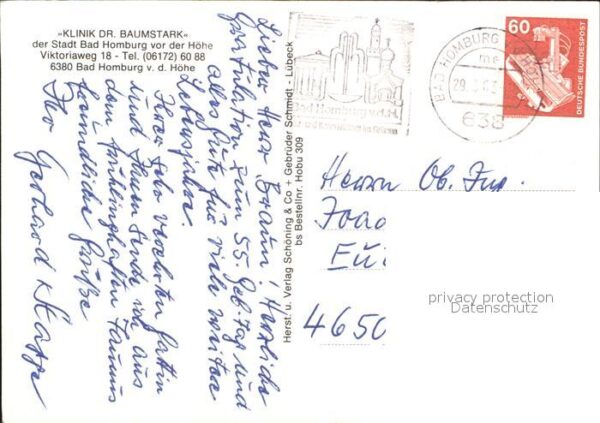 »KLINIK DR. BAUMSTARK«
der Stadt Bad Homburg vor der Höhe
Viktoriaweg 18 - Tel. (06172) 60 88
6380 Bad Homburg v. d. Höhe
Lieber Herr Braun! Herzliche
Gratulation zum 55. Geb.tag und
alles Gute für viele weitere
Lebensjahre.
Ihrer sehr verehrten Gattin
und Ihnen sende ich aus
dem frühlinghaften Taunus
freundliche Grüße
Ihr Gerhard
Herst. u. Verlag Schöning & Co + Gebrüder Schmidt - Lübeck
bs Bestellnr. Hobu 309
Bad Homburg v.d.H.
BAD HOMBURG
me
29.
638
60
DEUTSCHE BUNDESPOST
Herrn Ob. Insp.
Joac
4650
privacy protection
Datenschutz